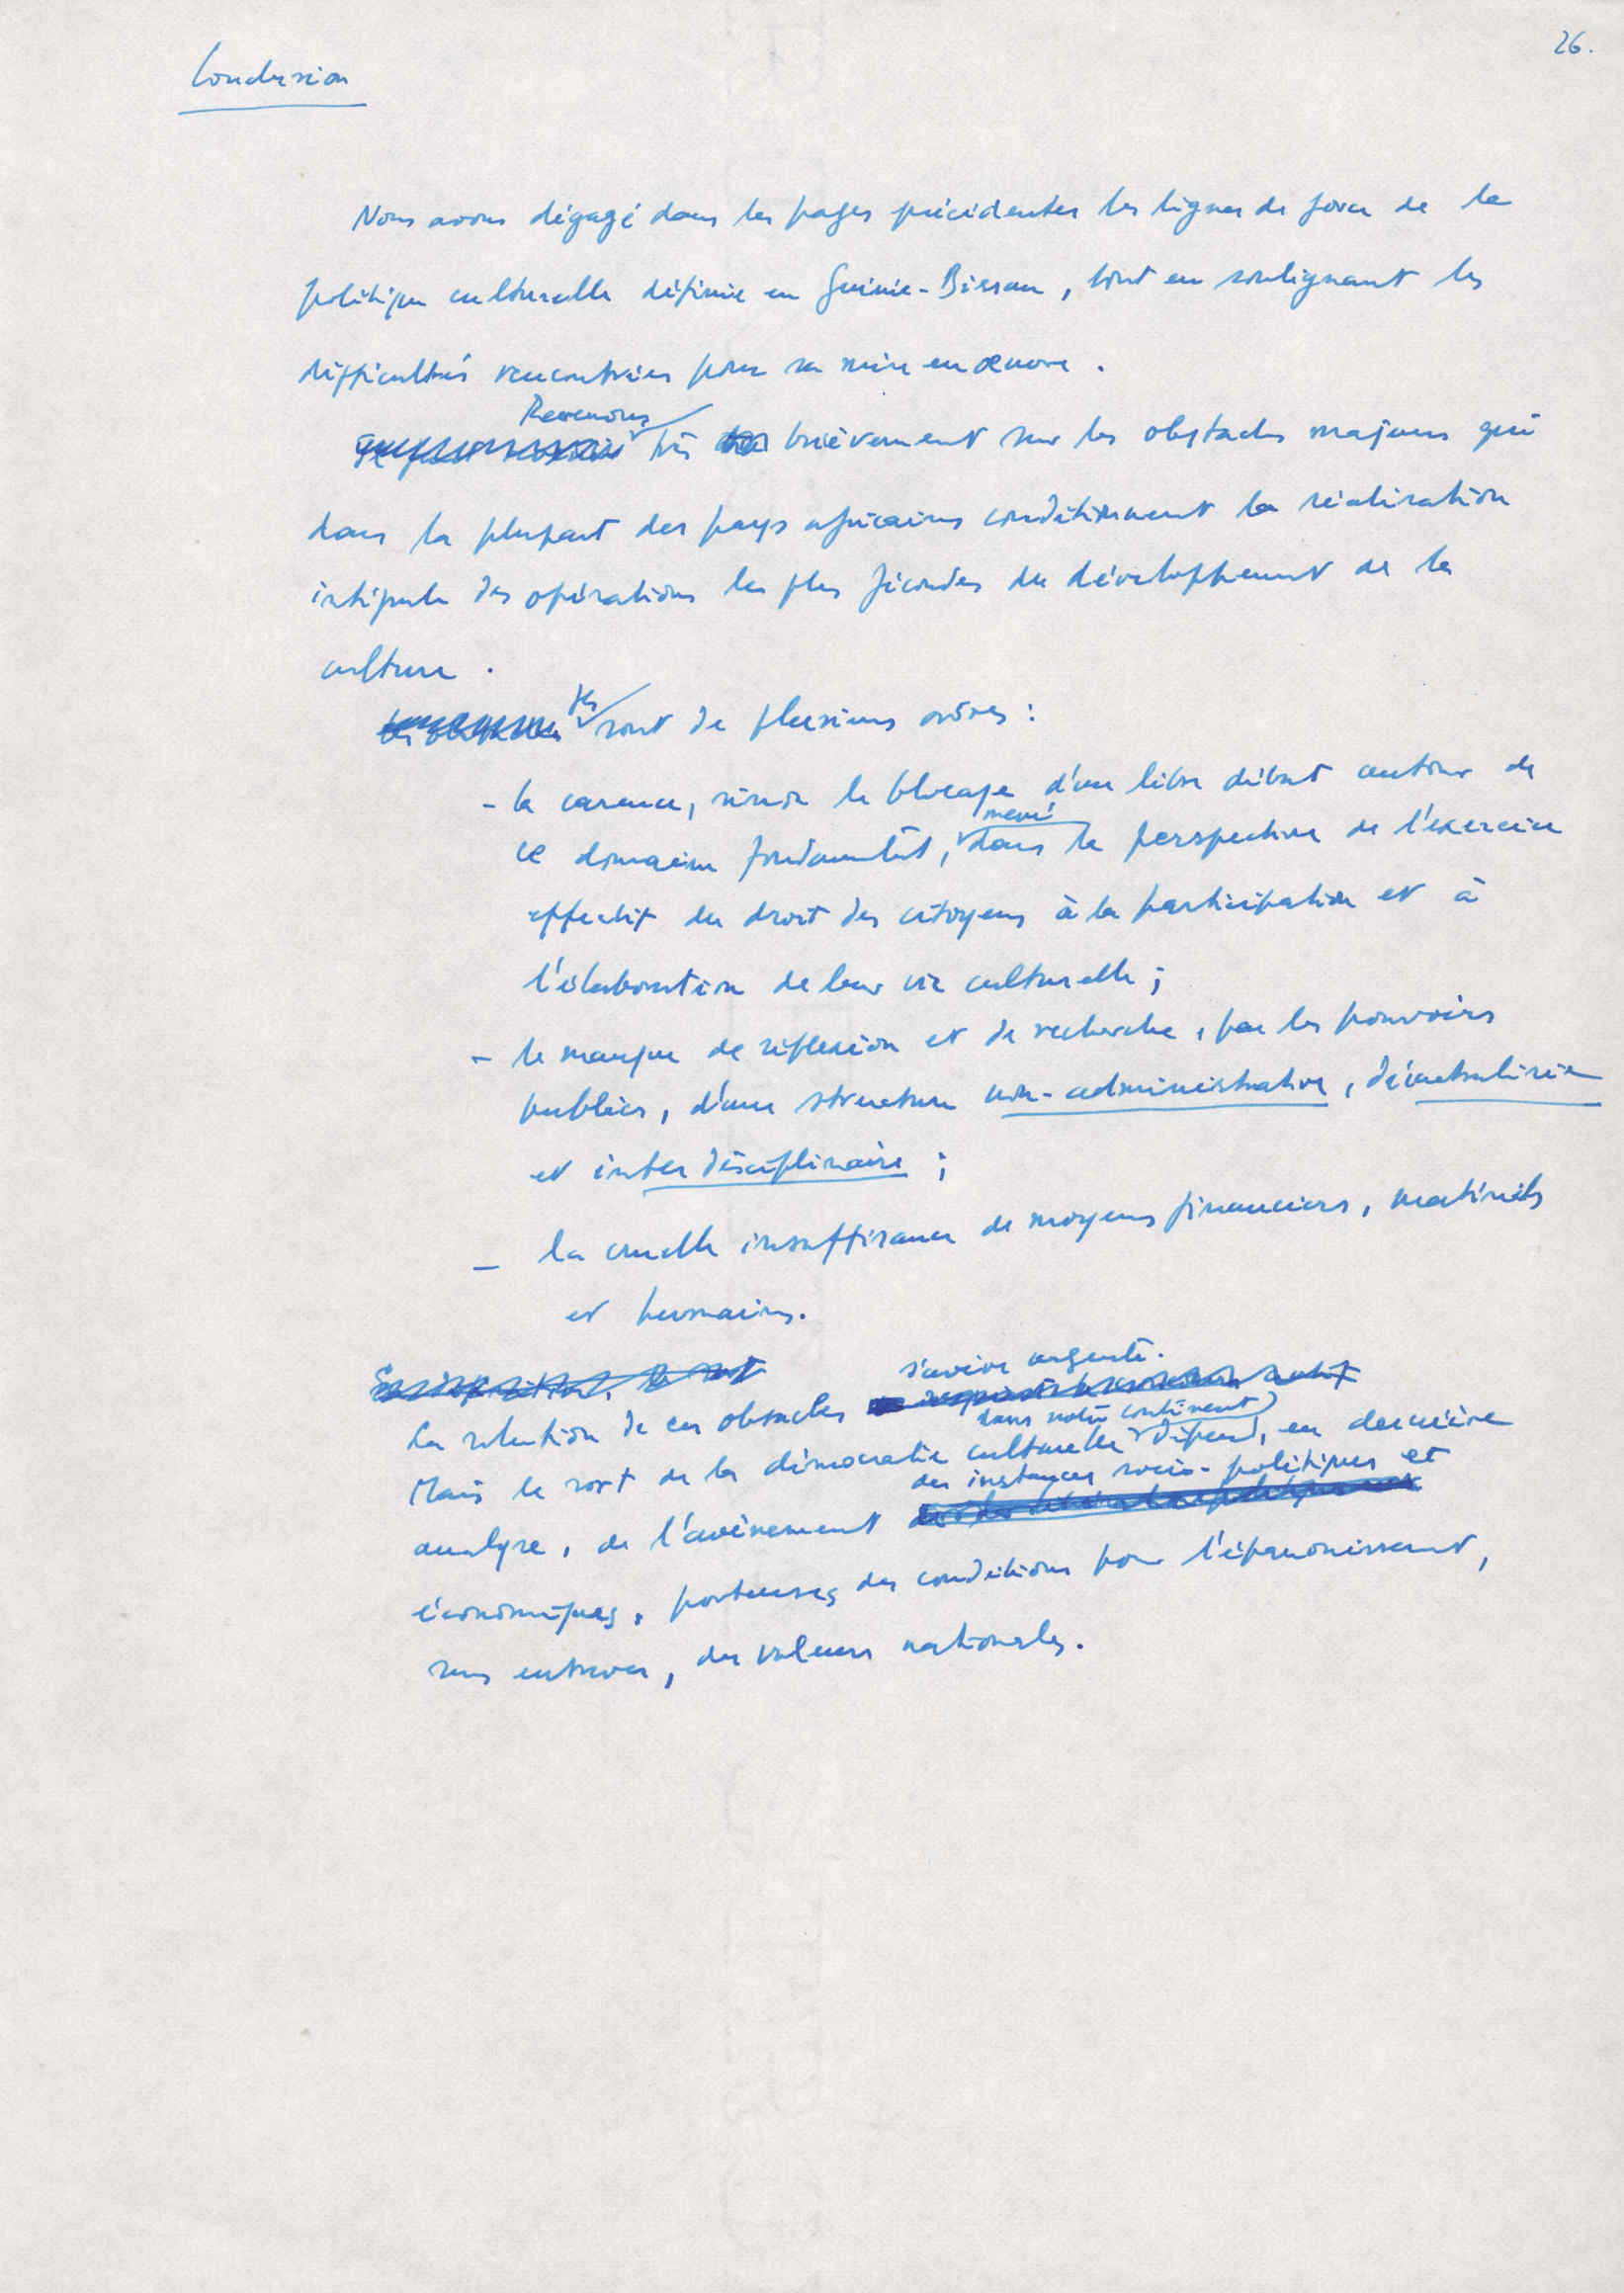 26.
Conclusion
Nous avons dégagé dans les pages précédentes les lignes de force de la
politique culturelle définie en Guinée-Bissau, tout en soulignant les
difficultés rencontrées pour sa mise en œuvre.
Revenons
très brièvement sur les obstacles majeurs qui
dans la plupart des pays africains conditionnent la réalisation
intégrale des opérations les plus fécondes du développement de la
culture.
Ils
sont de plusieurs ordres :
- la carence, sinon le blocage d'un libre débat autour de
mené
ce domaine fondamental, dans la perspective de l'exercice
effectif du droit des citoyens à la participation et à
l'élaboration de leur vie culturelle ;
- le manque de réflexion et de recherche, par les pouvoirs
publics, d'une structure non-administrative, décentralisée
et interdisciplinaire ;
- la cruelle insuffisance de moyens financiers, matériels
et humains.
s'avère urgente.
La solution de ces obstacles
dans notre continent
Mais le sort de la démocratie culturelle dépend, en dernière
des instances socio-politiques et
analyse, de l'avènement
économiques, porteuses des conditions pour l'épanouissement,
sans entraves, des valeurs nationales.